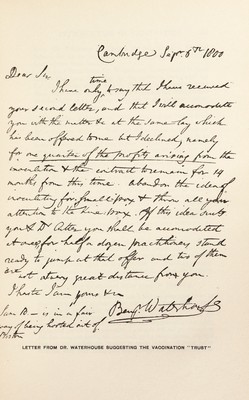 Cambridge Sepr. 6th 1800
Dear Sir
I have only time to say that I have received
your second letter, and that I will accomodate
you with the matter &c at the same lay which
has been offered to me but I declined, namely
for one quarter of the profits arising from the
inoculation & the contract to remain for 14
months from this time. Abandon the idea of
inoculating for small pox & throw all your
attention to the kine pox. If this idea suits
you & Dr you shall be accomodated
if not, for half a dozen practitioners stand
ready to jump at that offer and two of them
are not at very great distance from you.
I haste I am yours &c
Benj. Waterhouse
Sam B- is in a fair
way of being hooted out of
Boston
LETTER FROM DR. WATERHOUSE SUGGESTING THE VACCINATION "TRUST"